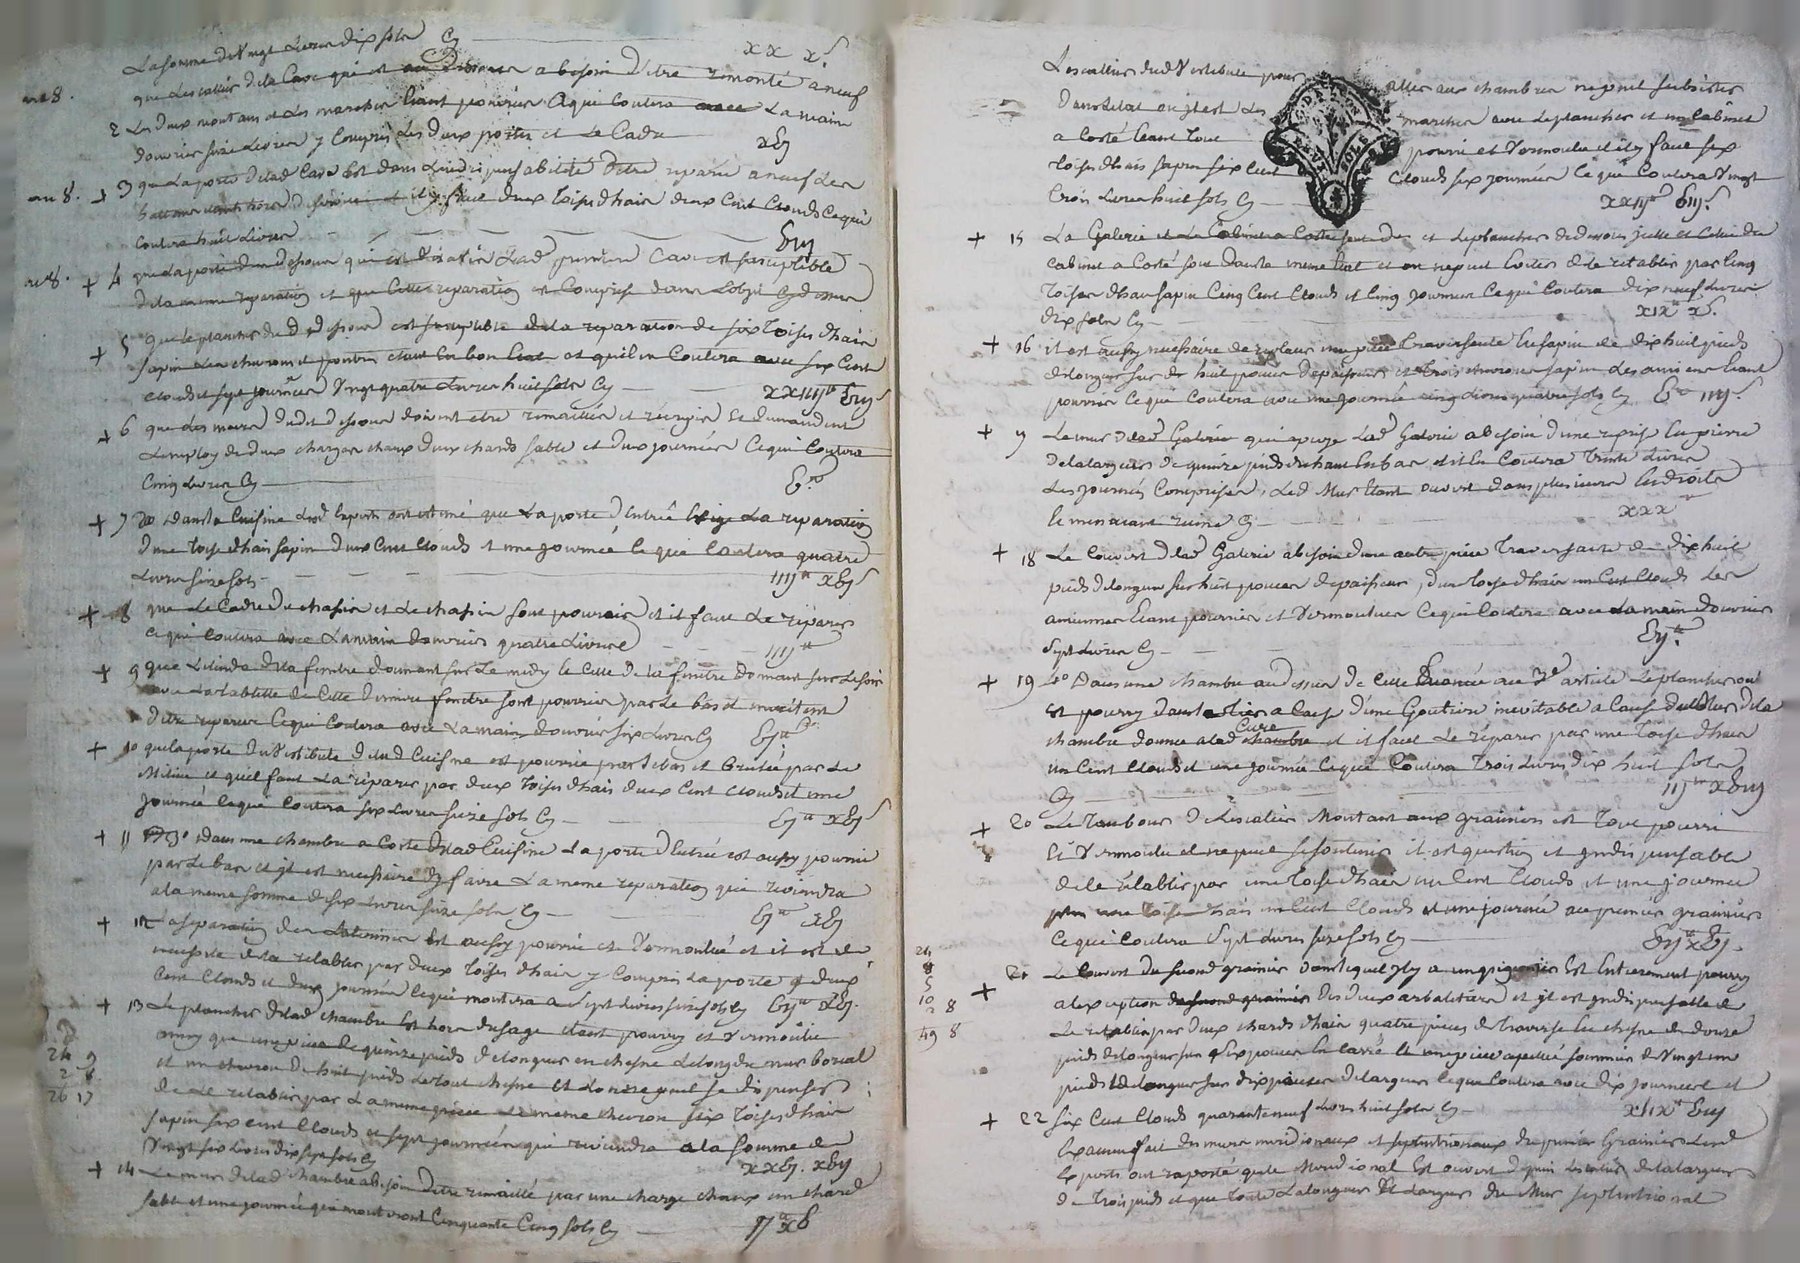 La somme de Vingt Livres dix sols Cy xx x s
que Lescallier de la Cave qui est au Dessous a besoin d'etre remonté a neuf
ar 8.
2 Les deux montans et les marches Etant pourries Ce qui Coutera avec La main
douvrier seize Livres y Compris Les deux portes et Le Cadre xbj
ar 8. + 3 que La porte delad Cave Est dans Lindispensabilité d'etre reparée a neuf Les
battans etants hors de service et il y faut deux toises dhais deux Cent Clouds Ce qui
Coutera huit Livres biij
ar 8. + 4 que La porte du dessous qui est derriere Lad premiere Cave est susceptible
de la meme reparation et que Cette reparation est Comprise dans Lobjet Cy dessus
+ 5 que le plancher dud dessous est susceptible de la reparation de six toises dhais
sapin Les chevrons et poutres etant En bon Etat et qu'il en Coutera avec six Cents
clouds et sept journées Vingt quatre Livres huit sols Cy xxiiij tt biij s
+ 6 que Les murs dudit dessous doivent etre remaillés et récrepis Et demandent
Lemploy de deux charges chaux deux chards sable et deux journées Ce qui Coutera
Cinq Livres Cy b tt
+ 7 2o Dans la Cuisine Lesd Experts ont estimé que La porte d'Entrée Exige La reparation
d'une toise dhais sapin deux Cent Clouds et une journée Ce qui Coutera quatre
Livres seize sols iiij tt xbj s
+ 8 que Le Cadre du chassis et Le chassis sont pourries et il faut Le reparer
Ce qui Coutera avec La main douvrier quatre Livres iiij tt
+ 9 que de la fenetre donnant sur Le midy le Cette de la fenetre donnant sur Le soir
avec La tablette de Cette derniere fenetre sont pourries par Le bas et meritent
d'etre reparées Ce qui Coutera avec La main douvrier six Livres Cy bj tt
+ 10 que la porte du Vestibule de lad Cuisine est pourrie par Le bas et brisée par Le
Milieu et quil faut La reparer par deux toises dhais deux Cent Clouds et une
journée Ce que Coutera six Livres seize sols Cy bj tt xbj s
+ 11 3o Dans une chambre a Coste delad Cuisine La porte d'Entrée est aussy pourrie
par Le bas et il est necessaire dy faire La meme reparation qui reviendra
a la meme somme de six Livres seize sols Cy bj tt xbj
+ 12 La separation des Latrines Est aussy pourrie et Vermoulue et il est de
necessité de la retablir par deux toises dhais y Compris La porte deux
Cent Clouds et deux journées Ce qui montera a Sept Livres seize sols Cy bij tt xbj.
+ 13 Le plancher delad chambre Est hors dusage etant pourry et Vermoulu
ainsy que une piece de quinze pieds de longueur en chesne Le long du mur boreal
et un chevron de huit pieds Le tout chesne Et Lon ne peut se dispenser
de Le retablir par La meme piece Le meme chevron six toises dhais
sapin six cent Clouds et sept journées qui reviendra a la somme de
Vingt six Livres dix sept sols Cy xxbj. xbij
24 9
2 8
26 17
+ 14 Le mur delad chambre a besoin d'etre remaillé par une charge chaux un chard
sable et une journée qui monteront Cinquante Cinq sols Cy ij tt xb
Lescallier dud Vestibule pour aller aux chambres ne peut subsister
dans letat ou il est Les marches avec le plancher et un Cabinet
a Costé Etant tout pourri et Vermoulu et il y faut six
toises dhais sapin six Cent Clouds six journées Ce qui Coutera Vingt
trois Livres huit sols Cy xxiij tt biij s
G. D'ALENCON
DEUX SOLS
+ 15 La Galerie et Le Cabinet a Costé sont et le plancher de dessous jcelle et Celui du
Cabinet a Costé sont dans le meme Etat et on ne peut Eviter de le retablir par Cinq
toises dhais sapin Cinq Cent Clouds et Cinq journées Ce qui Coutera dix neuf Livres
dix sols Cy xix tt x s.
+ 16 il est aussy necessaire de replacer une piece traversante En sapin de dixhuit pieds
de longueur sur de huit pouces depaisseur et trois chevrons sapin Les anciens Etant
pourries Ce qui Coutera avec une journée Cinq Livres quatre sols Cy b tt iiij s
+ 17 Le mur delad Galerie qui apuye Lad Galerie a besoin d'une reprise En pierre
de la largeur de quinze pieds de haut En bas et il En Coutera Trente Livres
Les journées Comprises, Led Mur Etant ouvert dans plusieurs Endroits
Le menaçant ruine Cy xxx
+ 18 Le Couvert delad Galerie a besoin d'une autre piece traversante de dixhuit
pieds de longueur sur huit pouces depaisseur, d'une toise dhais un Cent Clouds Les
anciennes Etant pourries et Vermoulues Ce qui Coutera avec La main douvrier
Sept Livres Cy bij tt.
+ 19 4o Dans une chambre au dessus de Cette Enoncée au 3e article Le plancher
Est pourry dans le tiers a Cause d'une Goutiere inevitable a Cause de la
chambre donnée alad Cure chambre et il faut Le reparer par une toise dhais
un Cent Clouds et une journée Ce qui Coutera trois Livres dix huit sols
Cy iij tt xbiij
+ 20 Le tambour de Lescallier Montant aux greniers est tout pourri
Et Vermoulu et ne peut se soutenir il est question et jndispensable
de le retablir par une toise dhais un Cent Clouds et une journée
plus une toise dhais un Cent Clouds et une journée au premier grainier
Ce qui Coutera Sept Livres seize sols Cy bij tt xbj.
24
8
5
10
2 8
49 8
+ 21 Le Couvert du second grainier dans lequel jl y a un pigeonier Est Entierement pourry
a lexception du second grainier des deux arbaletriers et jl est jndispensable de
Le retablir par deux chards dhais quatre pieces de traverse En chesne de douze
pieds de longueur sur six pouces En Carré Et une piece apellée sommier de Vingt un
pieds de longueur sur dix pouces de largeur Ce que Coutera avec dix journées et
six Cent Clouds quarante neuf Livres huit sols Cy xlix tt biij
+ 22 Examen fait des murs meridionaux et septentrionaux du premier Grainier Lesd
Experts ont raporté que le Meridional Est ouvert depuis Lescallier de la largeur
de trois pieds et que toute La longueur Et Largeur du Mur septentrional